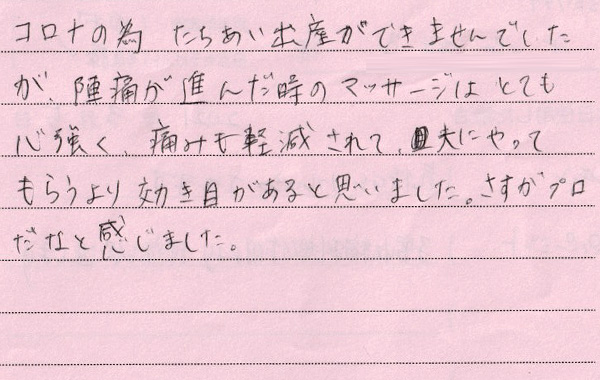 コロナの為 たちあい出産ができませんでした
が、陣痛が進んだ時のマッサージはとても
心強く、痛みも軽減されて、夫にやって
もらうより効き目があると思いました。さすがプロ
だなと感じました。